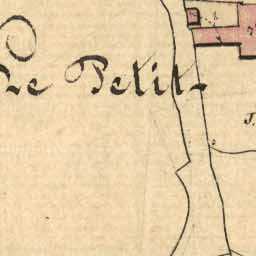 Le Petit-